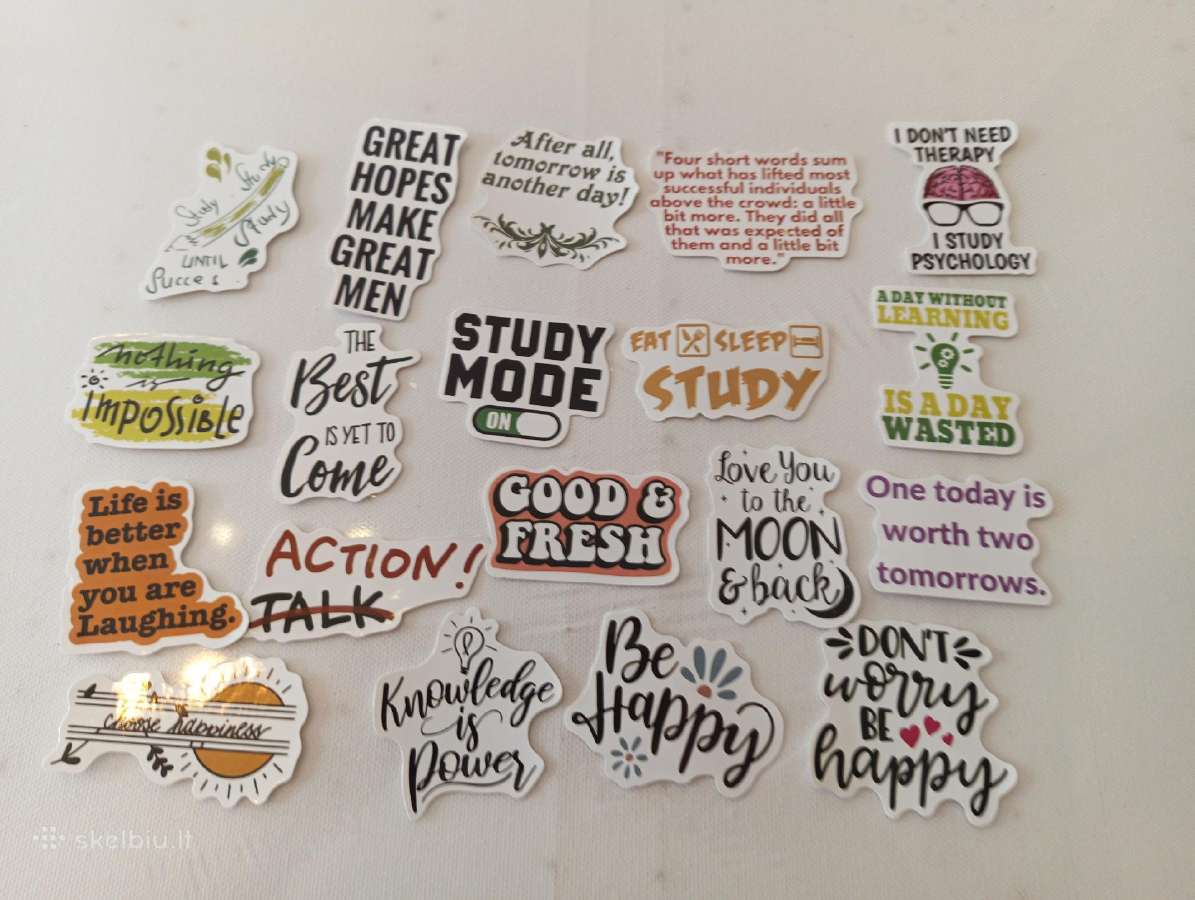 Study
Study
Study
UNTIL
Succes
GREAT
HOPES
MAKE
GREAT
MEN
After all,
tomorrow is
another day!
"Four short words sum
up what has lifted most
successful individuals
above the crowd: a little
bit more. They did all
that was expected of
them and a little bit
more."
I DON'T NEED
THERAPY
I STUDY
PSYCHOLOGY
nothing
is
impossible
THE
Best
IS YET TO
Come
STUDY
MODE
ON
EAT SLEEP
STUDY
A DAY WITHOUT
LEARNING
IS A DAY
WASTED
Life is
better
when
you are
Laughing.
ACTION!
TALK
GOOD &
FRESH
Love You
to the
MOON
& back
One today is
worth two
tomorrows.
choose happiness
Knowledge
is
Power
Be
Happy
DON'T
worry
BE
happy
skelbiu.lt